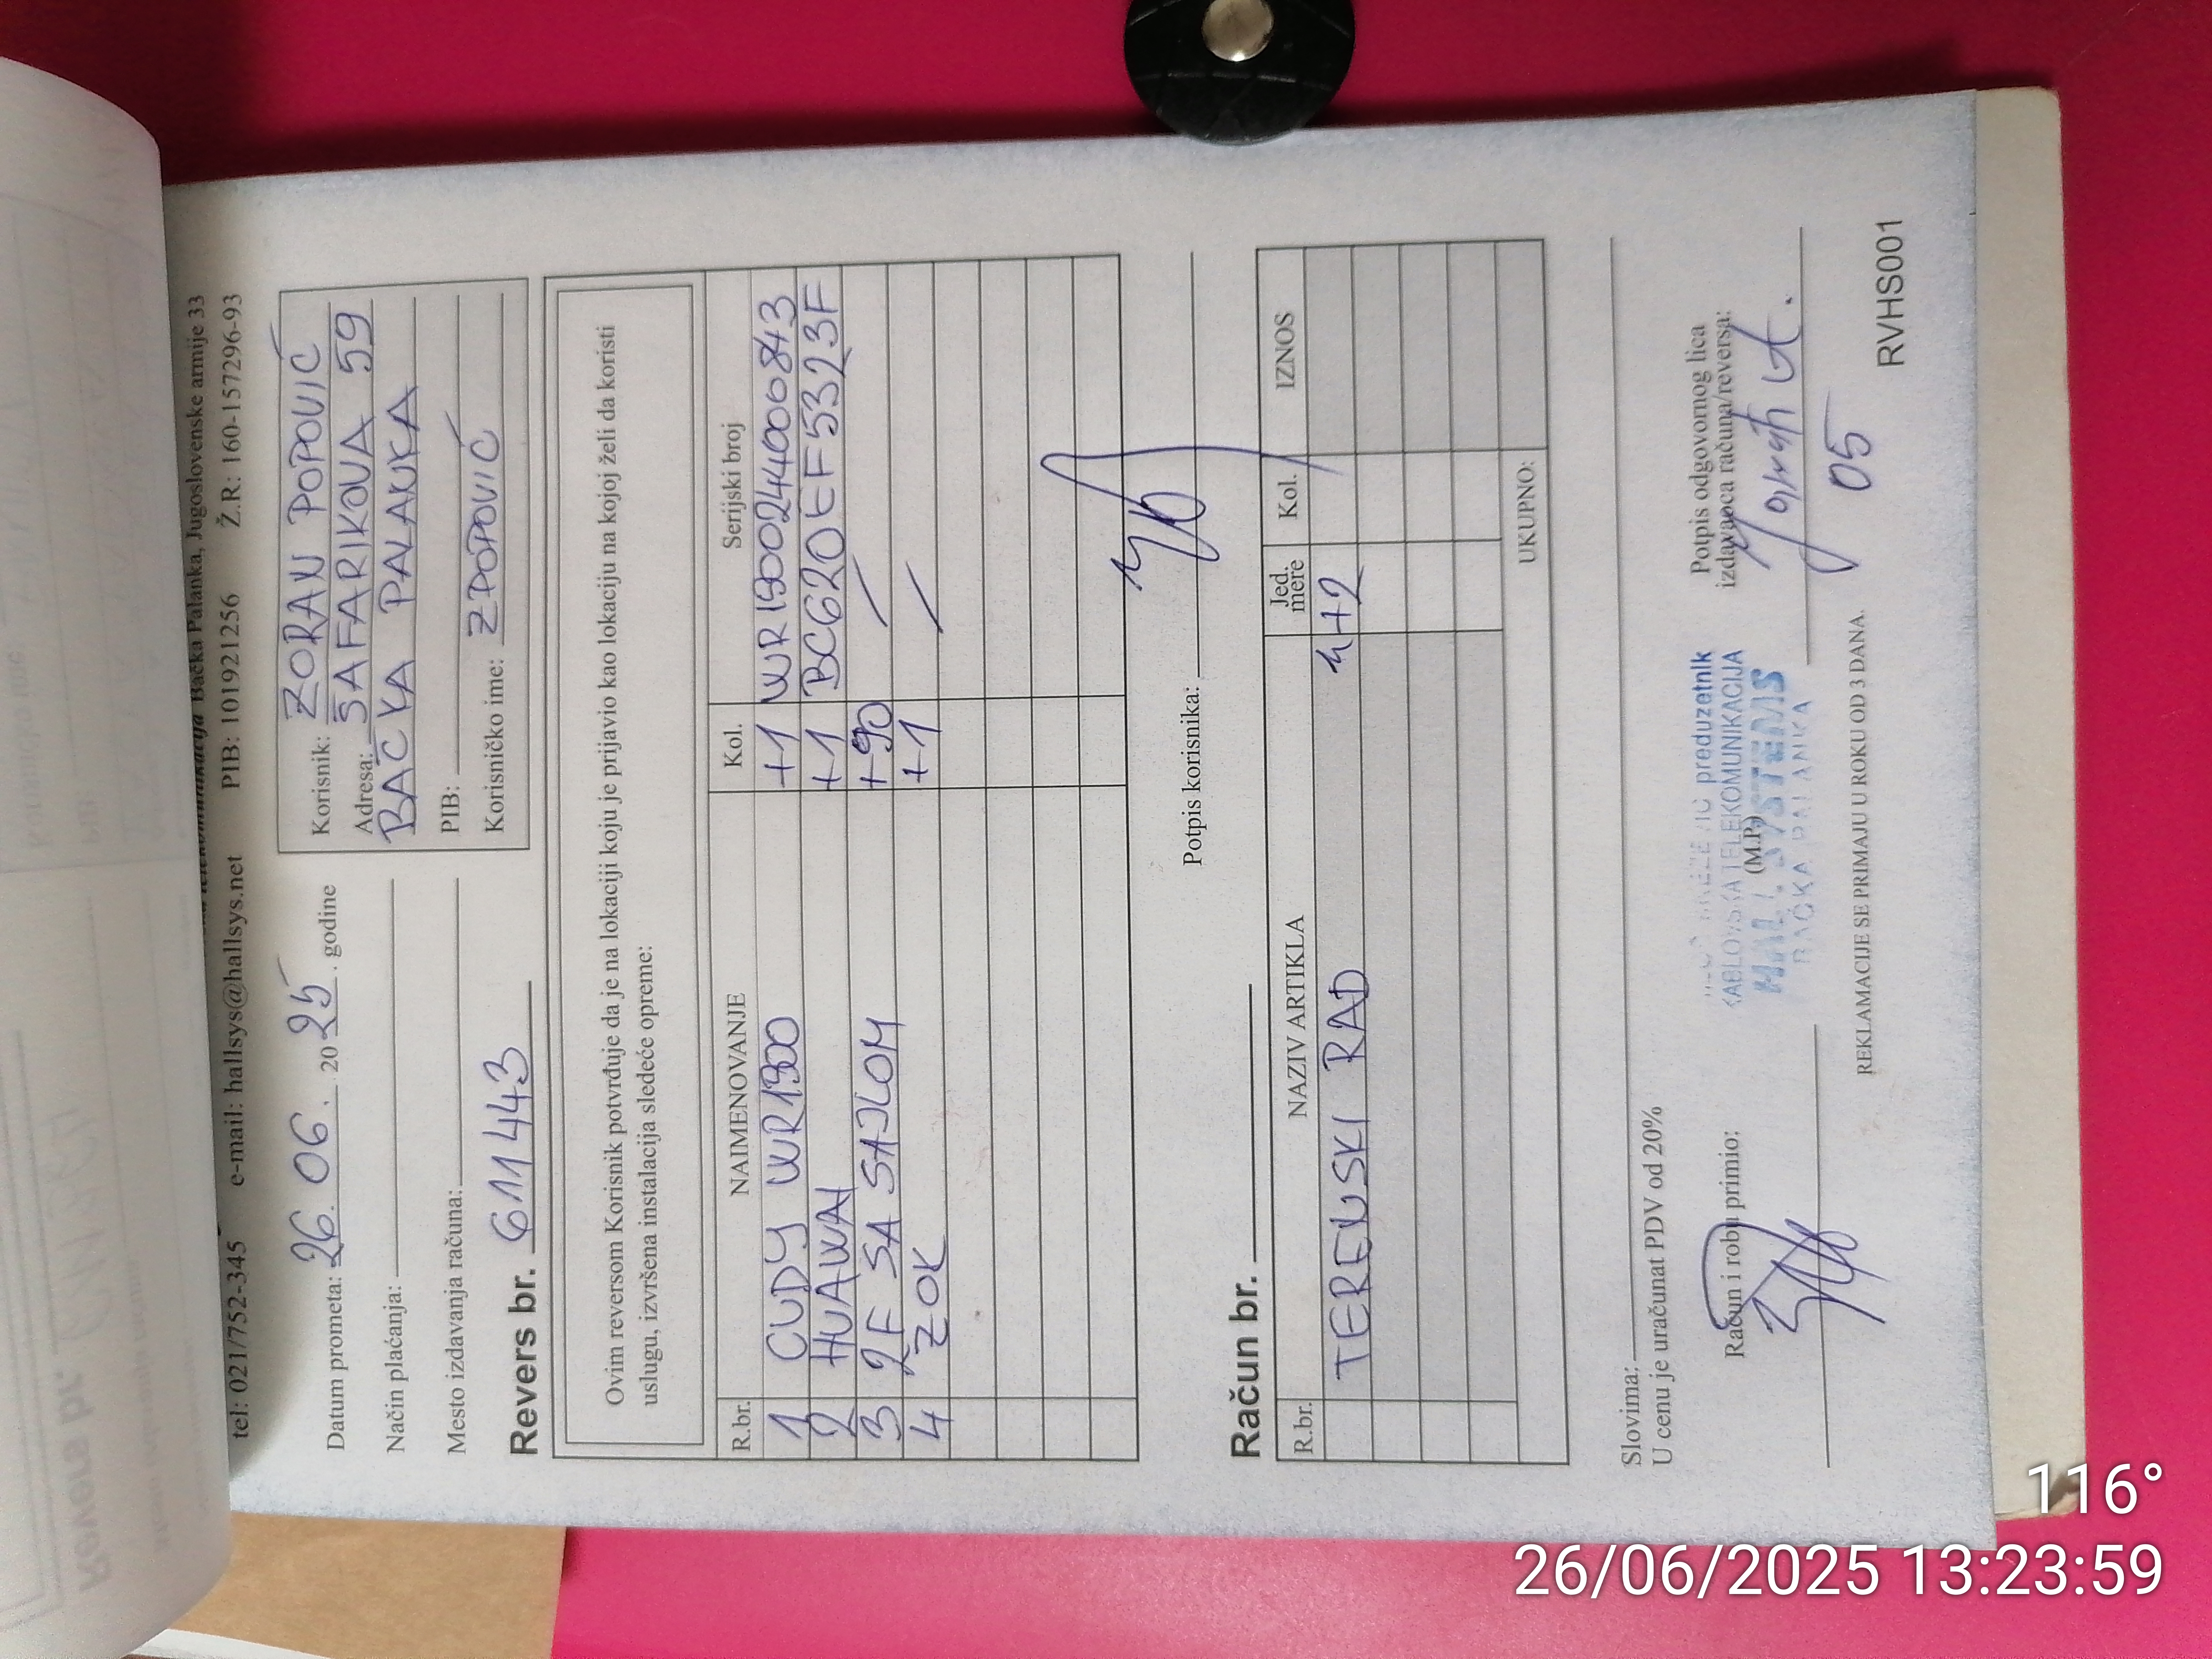 Bačka Palanka, Jugoslovenske armije 33
tel: 021/752-345 e-mail: hallsys@hallsys.net PIB: 101921256 Ž.R: 160-157296-93
Datum prometa: 26. 06. 2025. godine
Način plaćanja:
Mesto izdavanja računa:
Korisnik: ZORAN POPOVIĆ
Adresa: ŠAFARIKOVA 59
BAČKA PALANKA
PIB:
Korisničko ime: ZPOPOVIĆ
Revers br. 611443
Ovim reversom Korisnik potvrđuje da je na lokaciji koju je prijavio kao lokaciju na kojoj želi da koristi
uslugu, izvršena instalacija sledeće opreme:
R.br. NAIMENOVANJE Kol. Serijski broj
1 CUDY WR1300 +1 WR13002440006843
2 HUAWAI +1 BC620EF5323F
3 2F SA SAJLOM +90 /
4 ZOK +1 /
Potpis korisnika:
Račun br.
R.br. NAZIV ARTIKLA Jed. mere Kol. IZNOS
TERENSKI RAD H+2
UKUPNO:
Slovima:
U cenu je uračunat PDV od 20%
Račun i robu primio:
preduzetnik
KABLOVSKA TELEKOMUNIKACIJA
(M.P.)
HALL SYSTEMS
BAČKA PALANKA
Potpis odgovornog lica
izdavaoca računa/reversa:
05
REKLAMACIJE SE PRIMAJU U ROKU OD 3 DANA.
RVHS001
116°
26/06/2025 13:23:59